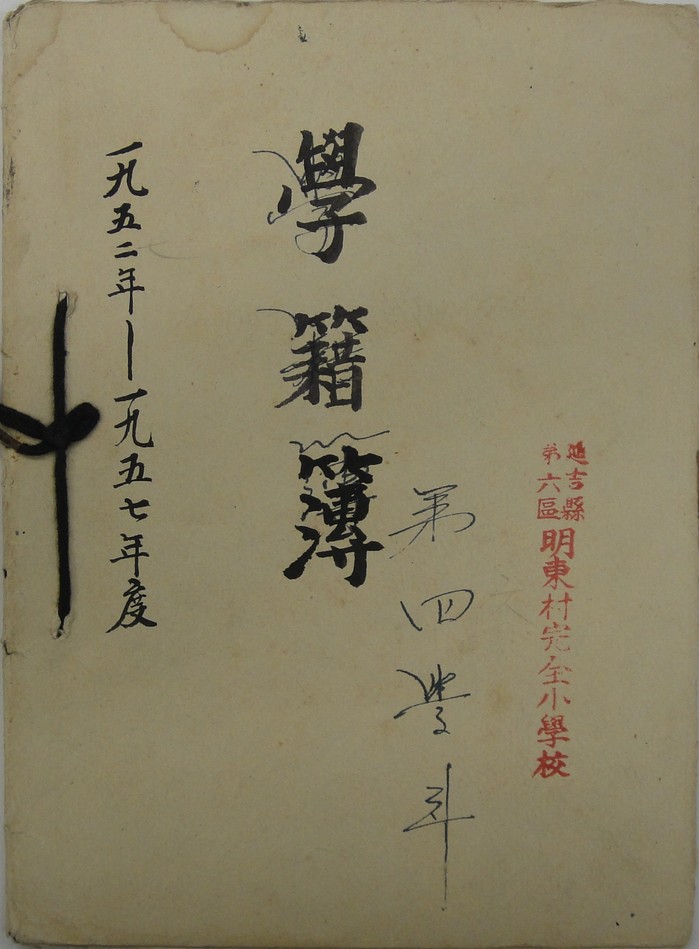 延吉縣
第六區
明東村完全小學校
第四學年
學籍簿
一九五二年—一九五七年度